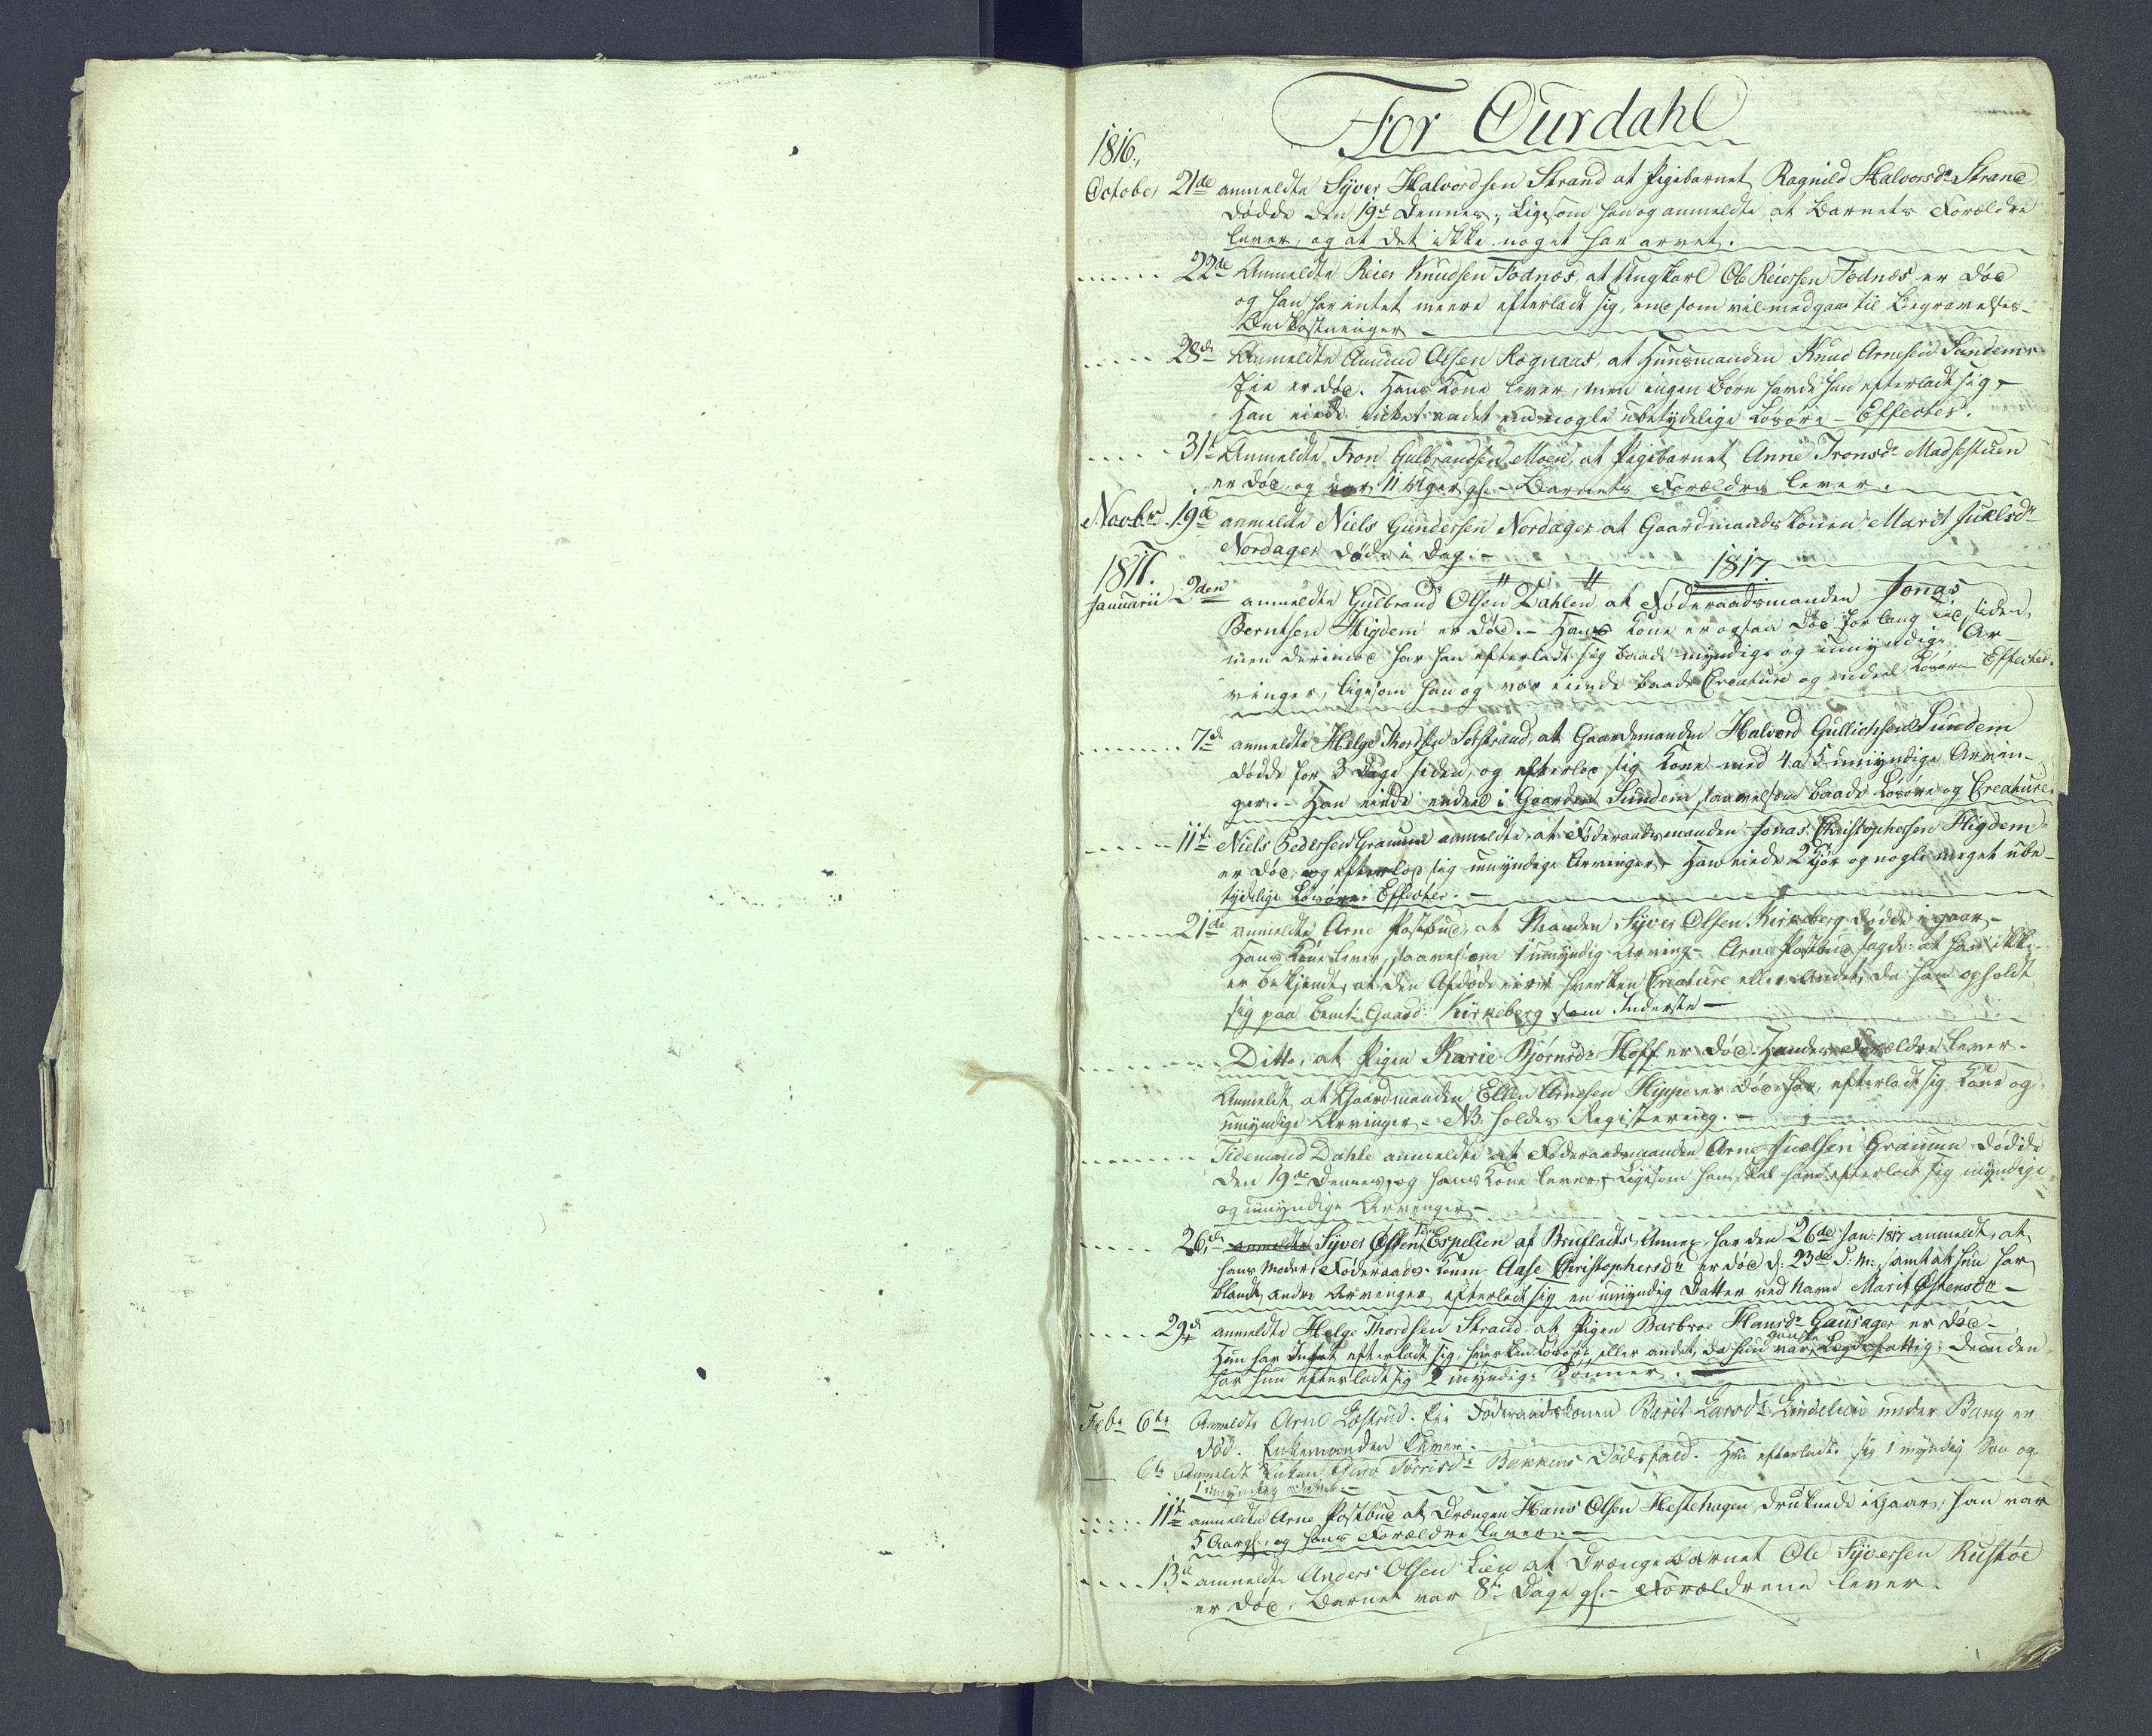 For Ourdahl
1816.
October 21de anmeldte Syver Halvordsen Strand at Pigebarnet Ragnild Halvorsdr Strand
døde den 19de Dennes, Ligesom han og anmeldte at Barnets Forældre
lever, og at det ikke noget har arvet.
22de Anmeldte Reier Knudsen Fodnæs, at Ungkarl Ole Reiersen Fodnæs er død
og han har intet meere efterladt sig, end som vil medgaae til Begravelses-
Omkostninger
28de Anmeldte Amund Olsen Rognaas, at Huusmanden Knud Arnesen Sundem
Eie er død. Hans Kone lever, men ingen Børn havde han efterladt sig,
Han eiede intet andet end nogle ubetydelige Løsøre-Effecter.
31te Anmeldte Tron Gulbrandsen Moen, at Pigebarnet Anne Tronsdr Madsestuen
er død, og var 11 Uger gl. Barnets Forældre lever.
Novbr 19de anmeldte Niels Gundersen Nordager at Gaardmandskonen Marit Juelsdr
Nordager døde i Dag.
1817.
1817.
Januarii 2den anmeldte Gulbrand Olsen Dahlen at Føderaadsmanden Jonas
Berntsen Højdem er død. Hans Kone er ogsaa død for lang tid siden,
men derimod har han efterladt sig baade myndige og umyndige Ar-
vinger, ligesom han og var eiende baade Creature og endeel Løsøre Effecter.
7de anmeldte Helge Thordsen Sørstrand, at Gaardmanden Halvord Gullichsen Sundem
døde for 3 Dage siden, og efterlod sig Kone med 4 a 5 umyndige Arvin-
ger. Han eiede endeel i Gaarden Sundem, saavelsom baade Løsøre og Creature.
11te Niels Pedersen Granum anmeldte, at Føderaadsmanden Jonas Christophersen Højdem
er død, og efterlod sig umyndige Arvinger, Han eiede 2 Kiør og nogle meget ube-
tydelige Løsøre Effecter.
21de anmeldte Arne Postbud, at Manden Syver Olsen Kirkeberg døde i gaar,
Hans Kone lever, saavelsom 1 umyndig Arving. Arne Postbud sagde: at han ikke
er bekjendt, at den Afdøde eier hverken Creature eller Andet, da han opholdt
sig paa bemte Gaard Kirkeberg som Inderste
Ditto, at Pigen Karie Bjørnsdr Hoff er død. Hendes Forældre lever.
Anmeldt, at Gaardmanden Ellen Arnesen Hippe er død, har efterladt sig Kone og
umyndige Arvinger. NB. holdes Registering.
Tidemand Dahle anmeldte at Føderaadsmanden Arne Juelsen Granum døde
den 19de Dennes, og hans Kone lever, Ligesom han skal have efterladt sig myndige
og umyndige Arvinger
26de anmeldte Syver Østensen Espelien af Brufladts Annex, har den 26de Jan: 1817 anmeldt, at
hans Moder: Føderaads-Konen Aase Christophersdr er død d: 23de d: M:, samt at hun har
blandt andre Arvinger, efterladt sig en umyndig Datter ved Navn Marit Østensdr
29de anmeldte Helge Thordsen Strand at Pigen Barbroe Hansdr Gausager er død.
Hun har Intet efterladt sig, hverken Løsøre eller andet, da hun var ganske Lægdefattig; Desuden
har hun efterladt sig 2 myndige Sønner.
Febr 6te Anmeldte Arne Løstrud. Eie Føderaadskonen Berit Larsdr Lindelien under Bang er
død. Enkemanden lever.
6te Anmeldt Enken Giøro Torrisdr Bakkens Dødsfald. Hun efterladte sig 1 myndig Søn og
1 umyndig Datter.
11te anmeldte Arne Postbud at Drængen Hans Olsen Hestehagen druknede i Gaar, han var
5 Aar gl. og hans Forældre lever.
13de anmeldte Anders Olsen Lien at Drængebarnet Ole Syversen Rustøe
er død. Barnet var 8te Dage gl. Forældrene lever.